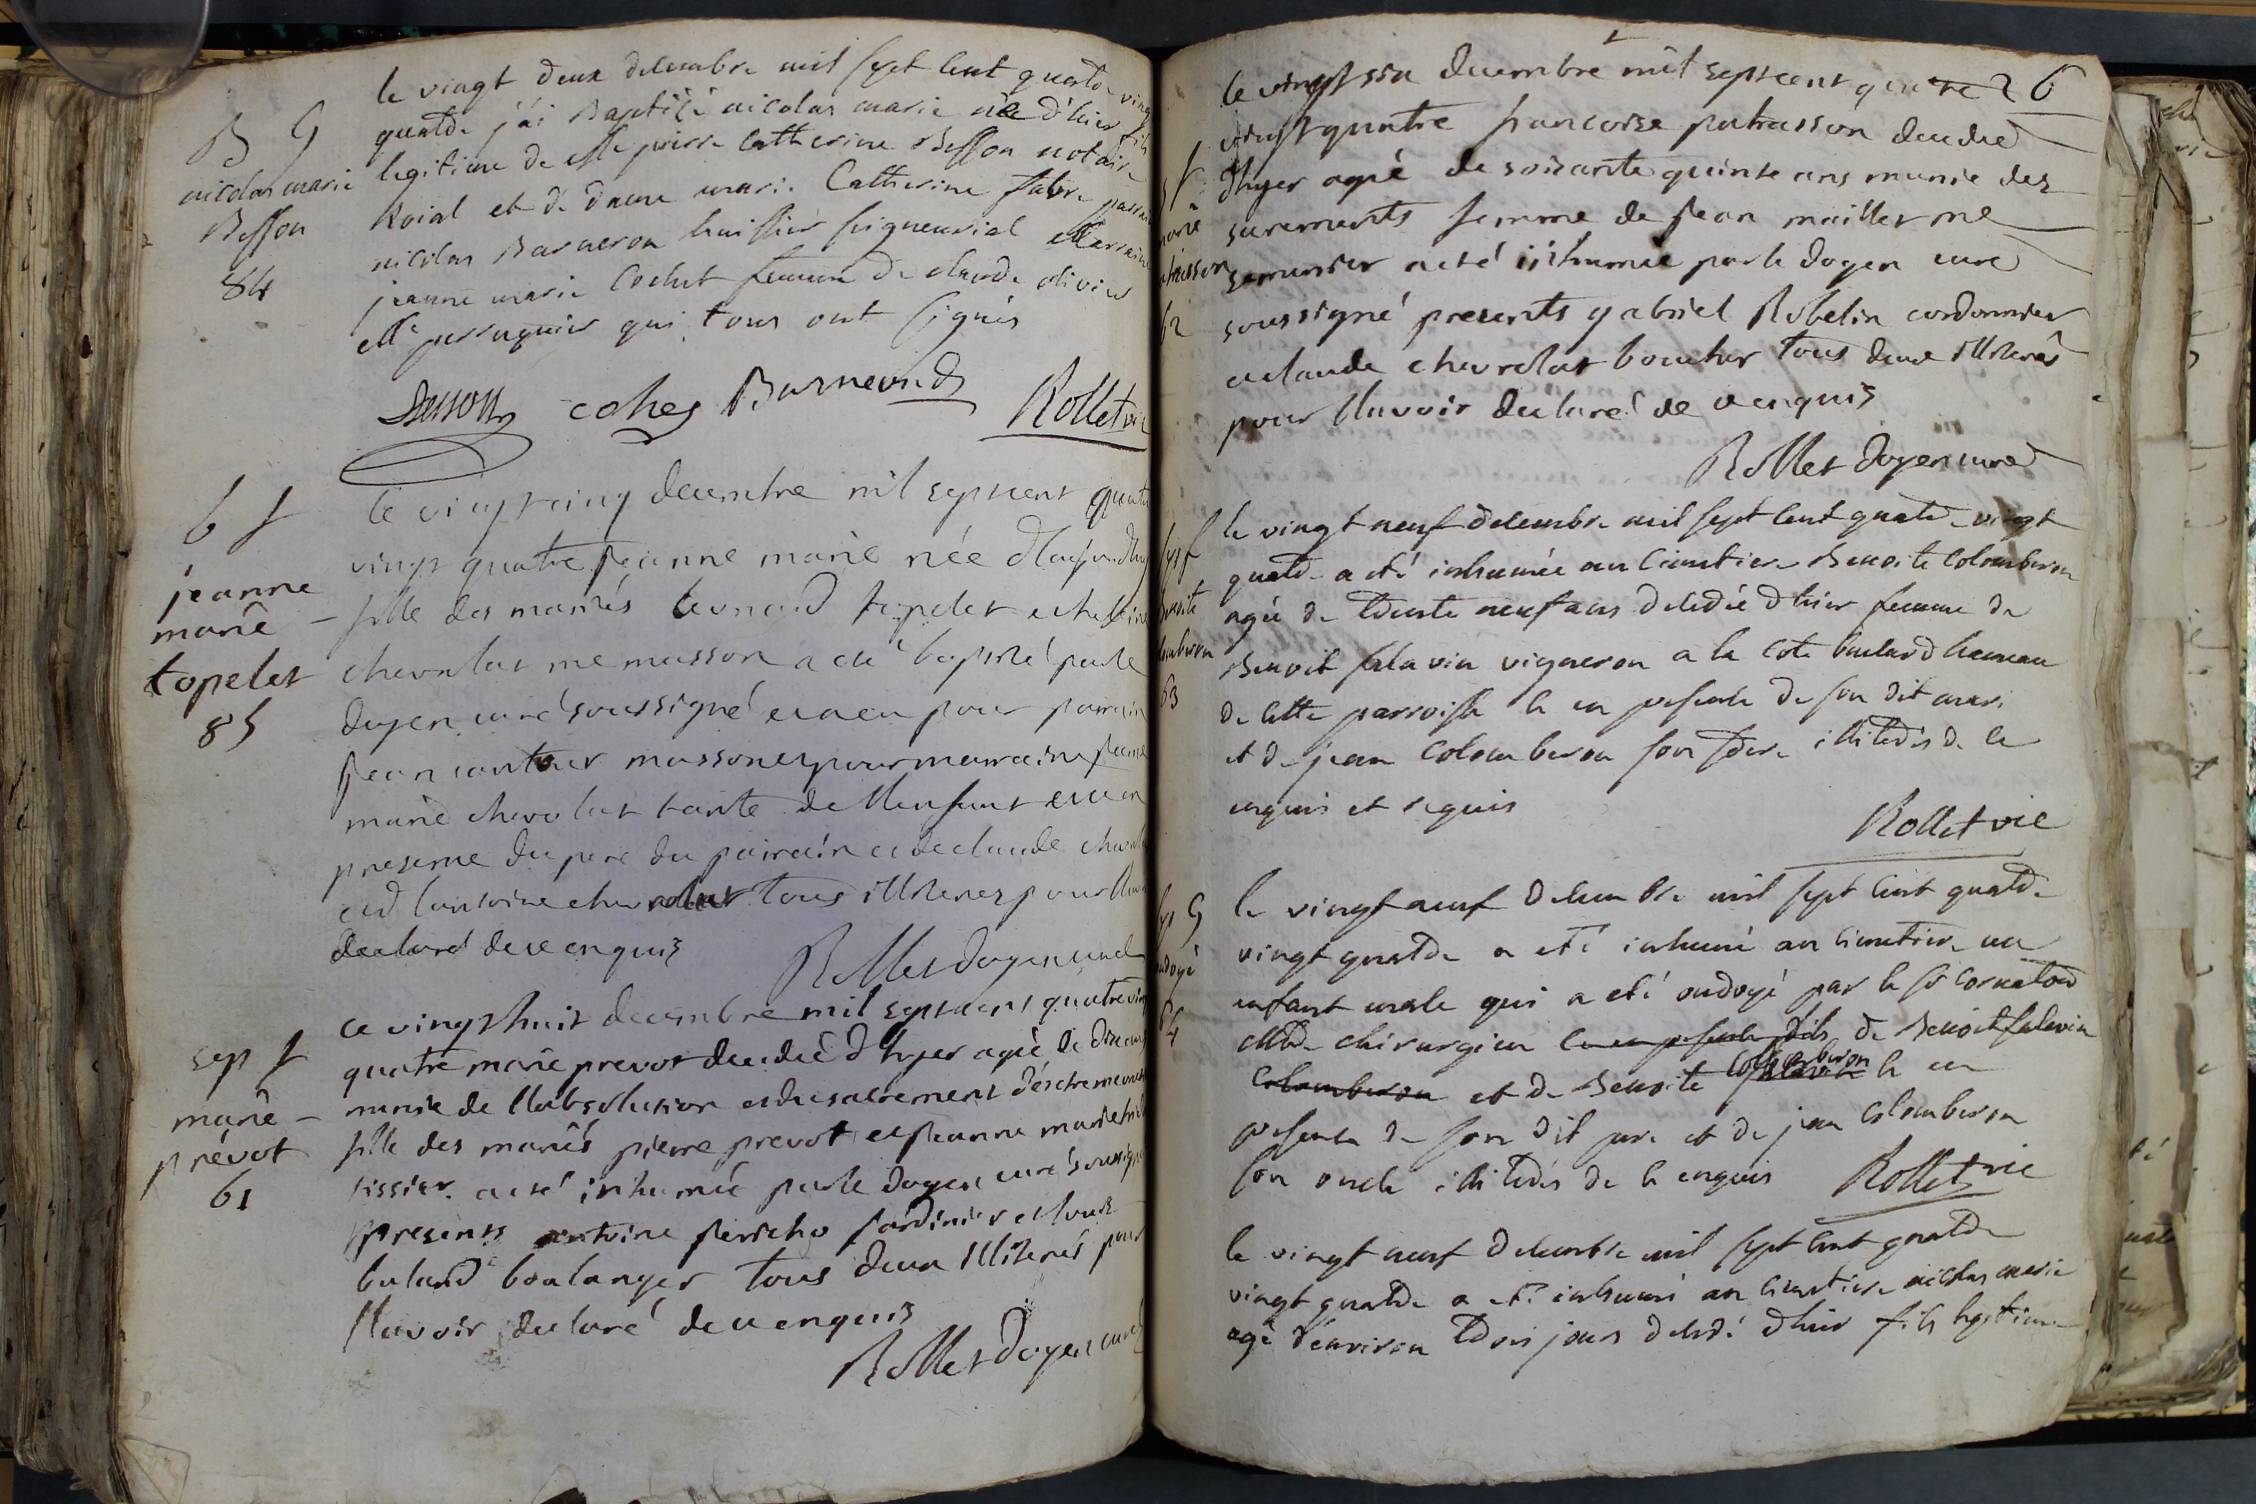 B G
nicolas marie
Besson
84
le vingt deux decembre mil sept cent quatre ving
quatre j'ai Baptisé nicolas marie né d'hier fils
legitime de Me pierre Catherine Besson notaire
Roial et de dame marie Catherine fabre parrain
nicolas Barneron huissier seigneurial Marraine
jeanne marie Cochet femme de claude olivier
Me perruquier qui tous ont signés
Besson cohet Barneoud Rollet vic
b f
jeanne
marie
topelet
85
le vingt cinq decembre mil sept cent quatre
vingt quatre jeanne marie née d'laujourdhuy
fille des mariés leonard topelet et
chevrolat me masson a eté baptisé par le
doyen curé soussigné et a eu pour parrain
jean masson et pour marraine jeanne
marie chevrolat tante de llenfant et en
presence du pere du parrain et de claude chevrolat
et d'lantoine chevrolat tous illiterez pour llavoir
declaré de ce enquis
Rollet doyen curé
sep f
marie
prévot
61
ce vingt huit decembre mil sept cent quatre vingt
quatre marie prevot decedée d'hyer agée de dix ans
munie de llabsolution et du sacrement d'extremeonction
fille des mariés pierre prevot et jeanne marie
tissier a eté inhumée par le doyen curé soussigné
presents antoine perricho jardinier et louis
buland boulanger tous deux illiterés pour
llavoir declaré de ce enquis
Rollet doyen curé
26
le vingt six decembre mil sept cent quatre
vingt quatre francoise patrasson decedée
d'hyer agée de soixante quinze ans munie des
sacrements femme de jean maillet me
serrurier a eté inhumée par le doyen curé
soussigné presents gabriel Robelin cordonnier
et claude chevrolat boucher tous deux illiterés
pour llavoir declaré de ce enquis
Rollet doyen curé
62
le vingt neuf decembre mil sept cent quatre vingt
quatre a eté inhumée au cimetiere Benoite Colomberon
agée de trente neuf ans decedée d'hier femme de
Benoit salavin vigneron a la cote hameau
de cette parroisse le en presence de son dit mari
et de jean Colomberon son frere illiterés de ce
enquis et requis
Rollet vic
63
le vingt neuf decembre mil sept cent quatre
vingt quatre a eté inhumé au cimetiere un
enfant male qui a eté ondoyé par le sr cornaton
Me chirurgien fils de Benoit salavin
Colomberon et de Benoite salavin Colomberon le en
presence de son dit pere et de jean Colomberon
son oncle illiterés de ce enquis Rollet vic
64
le vingt neuf decembre mil sept cent quatre
vingt quatre a eté inhumé au cimetiere nicolas marie
agé d'environ trois jours decedé d'hier fils legitime